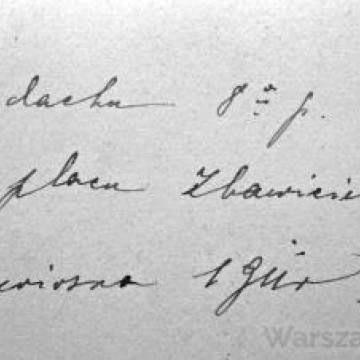 dachu 8º p.
placu Zbawicie
wiosna
Warsza